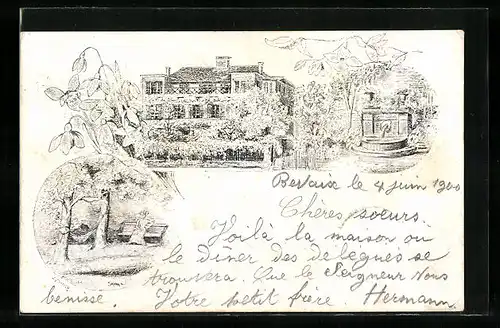 Bevaix le 4 juin 1900
Chères soeurs.
Voilà la maison où
le dîner des délégués se
trouvera. Que le Seigneur vous
benisse. Votre petit frère. Hermann.